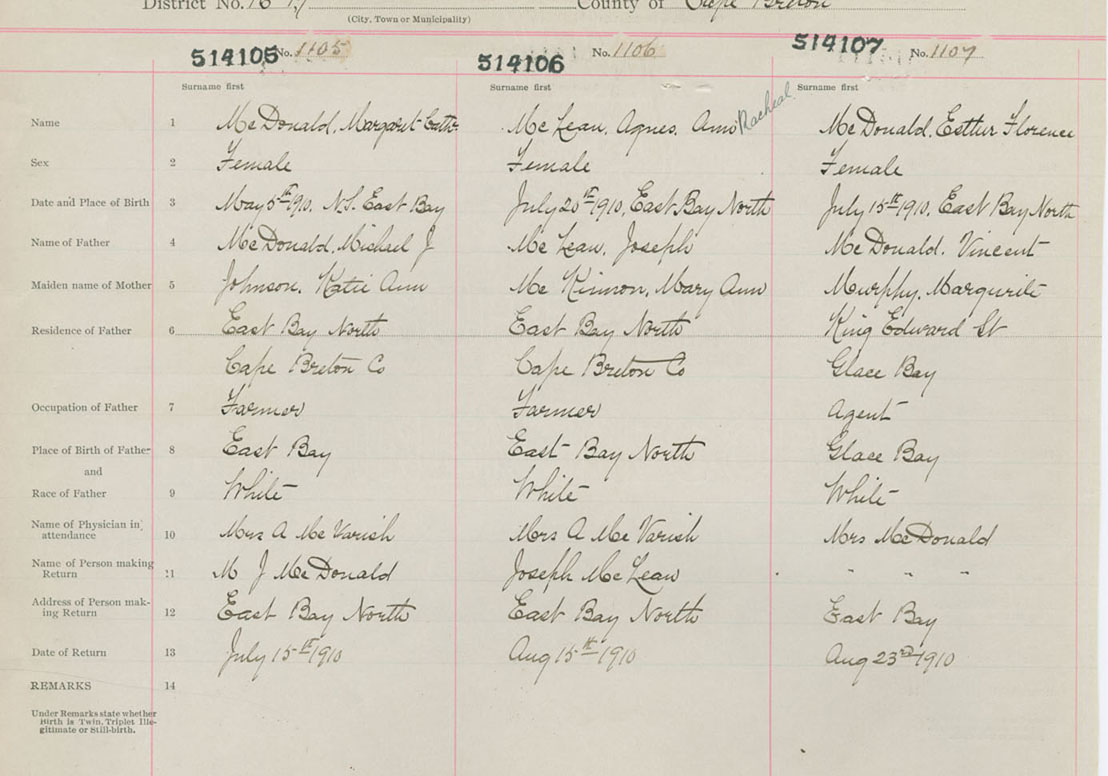 District No. 16 County of Cape Breton
(City, Town or Municipality)
514105 No. 1105 514106 No. 1106 514107 No. 1107
Surname first Surname first Surname first
Name 1 McDonald, Margaret Cath. McLean, Agnes, Ann Racheal McDonald, Esther Florence
Sex 2 Female Female Female
Date and Place of Birth 3 May 5th 1910, N.S. East Bay July 20th 1910, East Bay North July 15th 1910, East Bay North
Name of Father 4 McDonald, Michael J McLean, Joseph McDonald, Vincent
Maiden name of Mother 5 Johnson, Katie Ann McKinnon, Mary Ann Murphy, Margurite
Residence of Father 6 East Bay North East Bay North King Edward St
Cape Breton Co Cape Breton Co Glace Bay
Occupation of Father 7 Farmer Farmer Agent
Place of Birth of Father 8 East Bay East Bay North Glace Bay
and
Race of Father 9 White White White
Name of Physician in attendance 10 Mrs A McVarish Mrs A McVarish Mrs McDonald
Name of Person making Return 11 M J McDonald Joseph McLean " " "
Address of Person making Return 12 East Bay North East Bay North East Bay
Date of Return 13 July 15th 1910 Aug 15th 1910 Aug 23rd 1910
REMARKS 14
Under Remarks state whether
Birth is Twin, Triplet Ille-
gitimate or Still-birth.